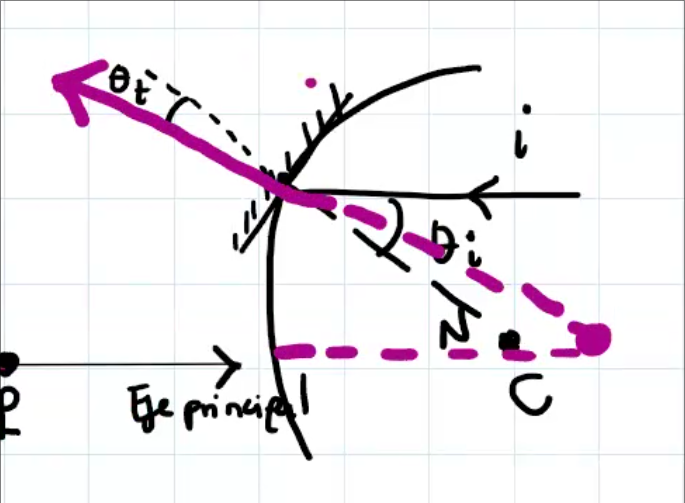 θt
i
θi
N
C
P
Eje principal